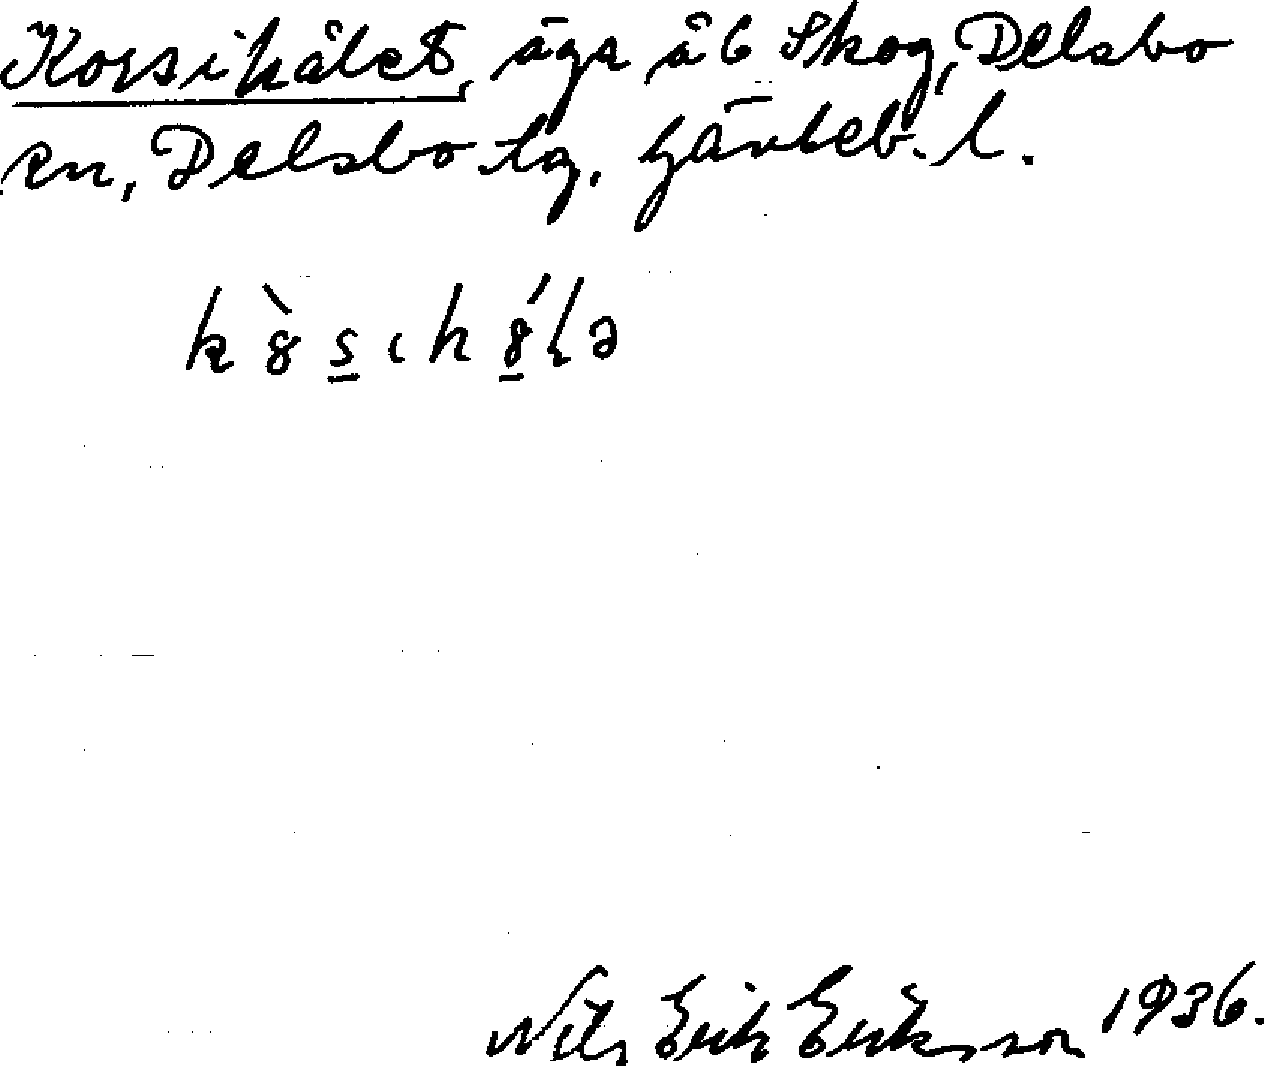 Korsihålet, äga å 6 Skog, Delsbo
sn, Delsbo tg, Gävleb. l.
Nils Erik Eriksson 1936.